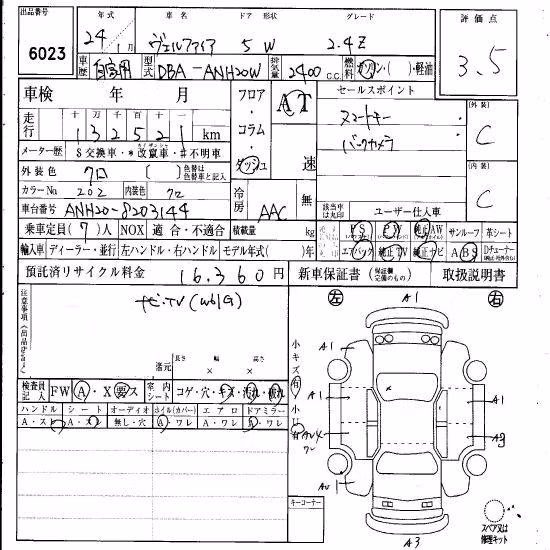 出品番号
6023
年式 車名 ドア 形状 グレード
24年 1月 ヴェルファイア 5W 2.4Z
車歴 自家用 型式 DBA-ANH20W 排気量 2400 c.c. 燃料 ガソリン・( )・軽油
評価点
3.5
車検 年 月
フロア・コラム・ダッシュ
AT
速
セールスポイント
スマートキー
バックカメラ
外装
C
内装
C
走行 十 万 千 百 十 一
132521 km
メーター歴 $交換車・*改竄車・#不明車
外装色 クロ ( ) 色替は色替車と記入
カラーNo 202 内装色 クロ
冷房 AAC 無
該当車は丸印
ユーザー仕入車
車台番号 ANH20-8203144
乗車定員 (7)人 NOX 適合・不適合 積載量 kg
PS PW 純正AW サンルーフ 革シート
輸入車 ディーラー・並行 左ハンドル・右ハンドル モデル年式( )年
エアバック 純正TV 純正ナビ ABS Dチューナー
預託済リサイクル料金 16,360円
新車保証書 (保証欄完備のもの) 取扱説明書
注意事項
ナビ・TV
長さ 幅 高さ
荷元 × ×
検査員記入 FW A・X 要ス
室内シート コゲ・穴・キズ・汚れ・破れ
ハンドル シート オーディオ ホイル(カバー) エアロ ドアミラー
A・ス A・ス 無し・穴 A・ワレ A・ワレ A・ワレ
小キズ 有
小 有
左
右
A1
A1
A1
A1
A3
A3
キーコーナー
スペア又は修理キット